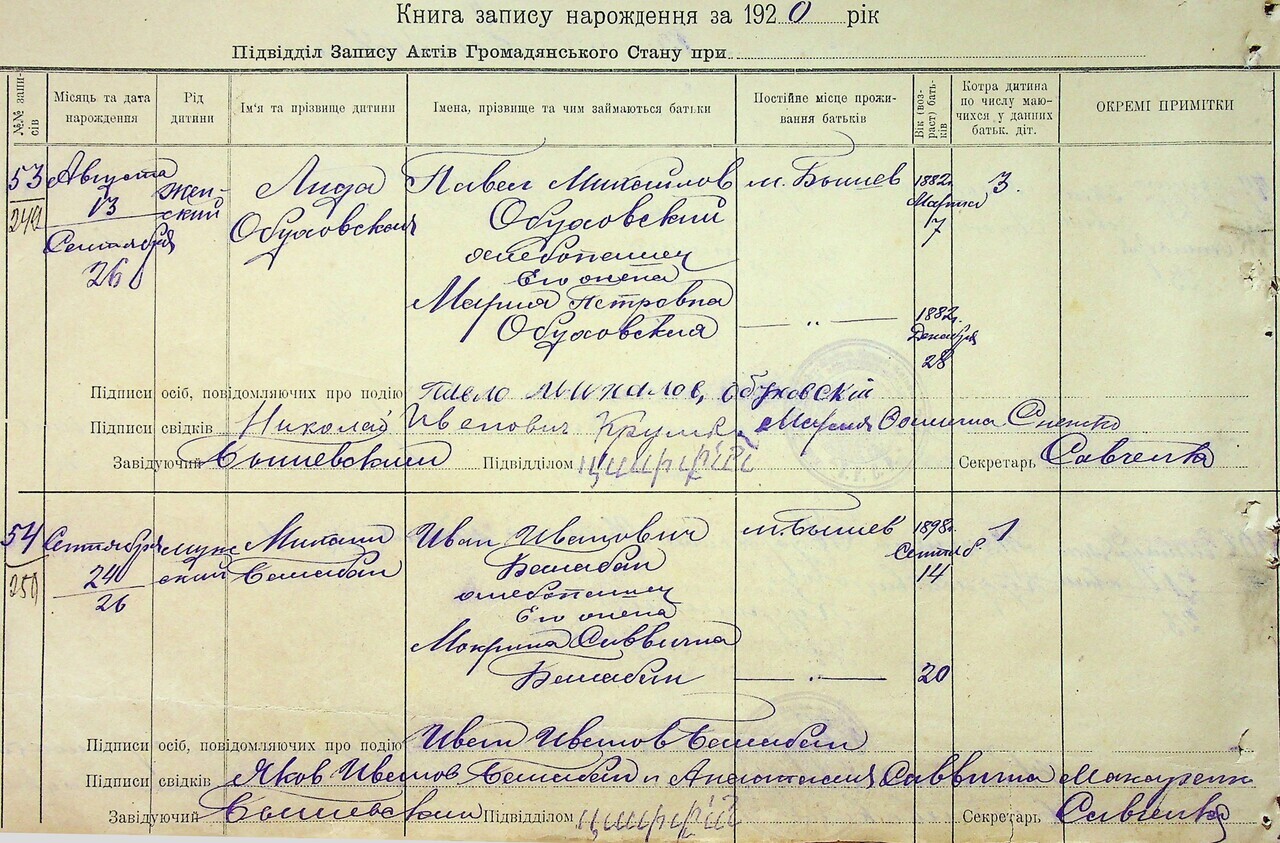 Книга запису нарождення за 1920 рік
Підвідділ Запису Актів Громадянського Стану при
№№ записів
Місяць та дата нарождення
Рід дитини
Ім'я та прізвище дитини
Імена, прізвище та чим займаються батьки
Постійне місце проживання батьків
Вік (возраст) батьків
Котра дитина по числу маючихся у данных батьк. діт.
ОКРЕМІ ПРИМІТКИ
53 Августа Женский Лида Павел Михайлов м. Бышев 1882г. 3.
249 13 Обуховская Обуховский Марта
Сентября хлебопашец 17
26 Его жена
Мария Петровна
Обуховская — „ — 1882г.
Декабря
28
Підписи осіб, повідомляючих про подію Павло Михалов, Обуховскій
Підписи свідків Николай Иванович Мария
Завідуючий Вышевский Підвідділом Секретарь Савченко
54 Сентября мужской Михаил Иван Иванович м. Бышев 1898г. 1
250 24 Балабан Балабан Сентяб
26 хлебопашец 14
Его жена
Мокрина Саввична
Балабан — „ — 20
Підписи осіб, повідомляючих про подію Иван Иванов Балабан
Підписи свідків Яков Иванов Балабан и Анастасия Саввична Макаренко
Завідуючий Вышевский Підвідділом Секретарь Савченко